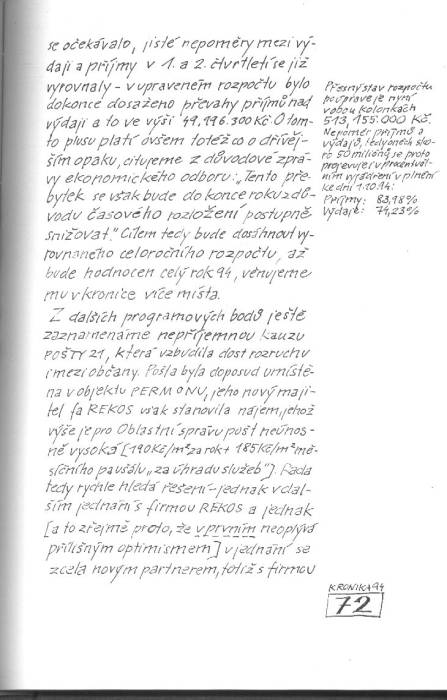 se očekávalo, jisté nepoměry mezi vý-
daji a příjmy v 1. a 2. čtvrtletí se již
vyrovnaly - v upraveném rozpočtu bylo
dokonce dosaženo převahy příjmů nad
výdaji a to ve výši 49,196.300 Kč. O tom-
to plusu platí ovšem totéž co o dřívěj-
ším opaku, citujeme z důvodové zprá-
vy ekonomického odboru: „Tento pře-
bytek se však bude do konce roku z dů-
vodu časového rozložení postupně
snižovat." Cílem tedy bude dosáhnout vy-
rovnaného celoročního rozpočtu, až
bude hodnocen celý rok 94, věnujeme
mu v kronice více místa.
Z dalších programových bodů ještě
zaznamenáme nepříjemnou kauzu
POŠTY 21, která vzbudila dost rozruchu
i mezi občany. Pošta byla doposud umístě-
na v objektu PERMONU, jeho nový maji-
tel fa REKOS však stanovila nájem, jehož
výše je pro Oblastní správu pošt neúnos-
ně vysoká [190Kč/m² za rok + 185Kč/m² mě-
síčního paušálu „za úhradu služeb"]. Rada
tedy rychle hledá řešení - jednak v dal-
ším jednání s firmou REKOS a jednak
[a to zřejmě proto, že v prvním neoplývá
přílišným optimismem] v jednání se
zcela novým partnerem, totiž s firmou
Přesný stav rozpočtu
po úpravě je nyní
v obou kolonkách
513,155.000 Kč.
Nepoměr příjmů a
výdajů, tedy oněch sko-
ro 50 miliónů, se proto
projevuje i v procentuál-
ním vyjádření v plnění
ke dni 1.10.94:
Příjmy: 83,98%
Výdaje: 74,23%
KRONIKA 94
72